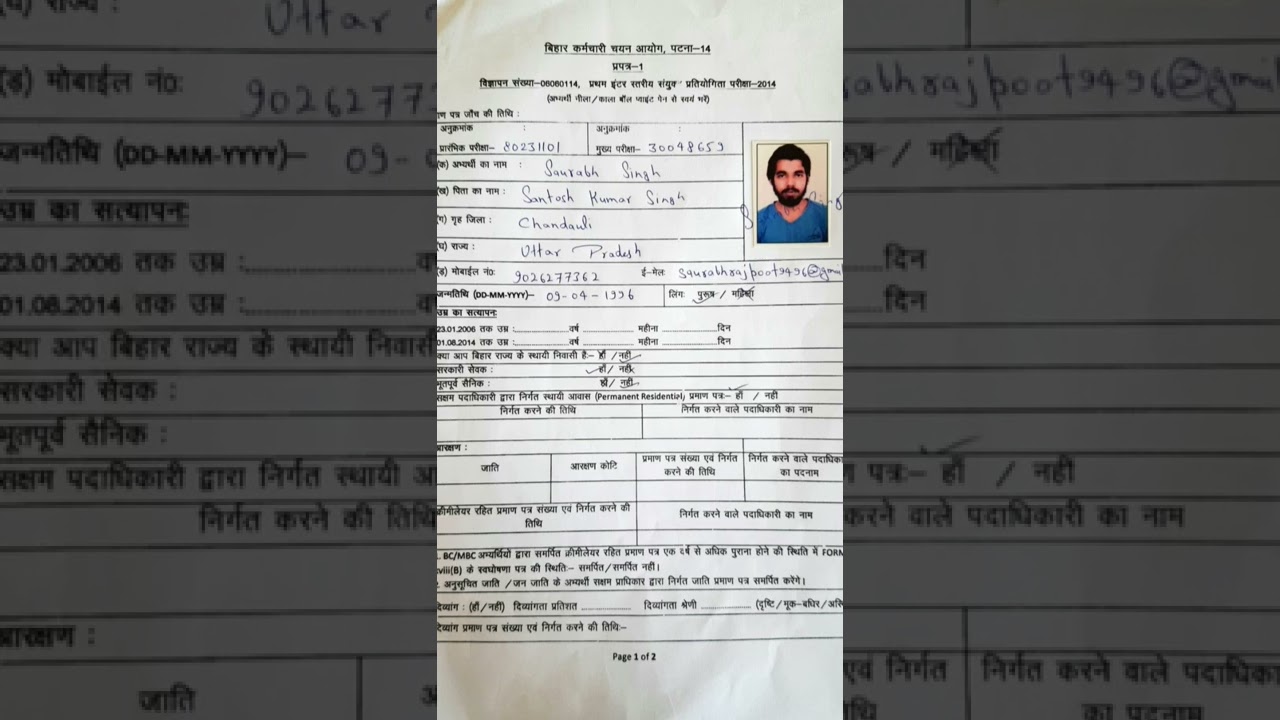 बिहार कर्मचारी चयन आयोग, पटना–14
प्रपत्र–1
विज्ञापन संख्या–06060114, प्रथम इंटर स्तरीय संयुक्त प्रतियोगिता परीक्षा–2014
(अभ्यर्थी नीला/काला बॉल प्वाइंट पेन से स्वयं भरें)
ण पत्र जाँच की तिथि :
अनुक्रमांक : अनुक्रमांक :
प्रारंभिक परीक्षा– 80231101 मुख्य परीक्षा– 30098659
(क) अभ्यर्थी का नाम : Saurabh Singh
(ख) पिता का नाम : Santosh Kumar Singh
(ग) गृह जिला : Chandauli
(घ) राज्य : Uttar Pradesh
(ड़) मोबाईल नं०: 9026277362 ई–मेल: saurabhrajpoot9496@gmail
जन्मतिथि (DD-MM-YYYY)– 09-04-1996 लिंग: पुरूष / महिला
उम्र का सत्यापन:
23.01.2006 तक उम्र :...............वर्ष ............... महीना ...............दिन
01.08.2014 तक उम्र :...............वर्ष ............... महीना ...............दिन
क्या आप बिहार राज्य के स्थायी निवासी है:– हाँ / नहीं
सरकारी सेवक : हाँ/ नहीं
भूतपूर्व सैनिक : हाँ/ नहीं
सक्षम पदाधिकारी द्वारा निर्गत स्थायी आवास (Permanent Residential) प्रमाण पत्र:– हाँ / नहीं
निर्गत करने की तिथि निर्गत करने वाले पदाधिकारी का नाम
आरक्षण :
जाति आरक्षण कोटि प्रमाण पत्र संख्या एवं निर्गत करने की तिथि निर्गत करने वाले पदाधिका का पदनाम
क्रीमीलेयर रहित प्रमाण पत्र संख्या एवं निर्गत करने की तिथि निर्गत करने वाले पदाधिकारी का नाम
. BC/MBC अभ्यर्थियों द्वारा समर्पित क्रीमीलेयर रहित प्रमाण पत्र एक वर्ष से अधिक पुराना होने की स्थिति में FORM
viii(B) के स्वघोषणा पत्र की स्थिति:– समर्पित/समर्पित नहीं।
. अनुसूचित जाति /जन जाति के अभ्यर्थी सक्षम प्राधिकार द्वारा निर्गत जाति प्रमाण पत्र समर्पित करेंगे।
दिव्यांग : (हाँ/नहीं) दिव्यांगता प्रतिशत ............... दिव्यांगता श्रेणी ............... (दृष्टि/मूक–बधिर/अस्थि
दिव्यांग प्रमाण पत्र संख्या एवं निर्गत करने की तिथि:–
Page 1 of 2